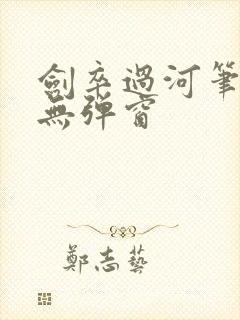 劍卒過河筆
無彈窗
鄭志藝